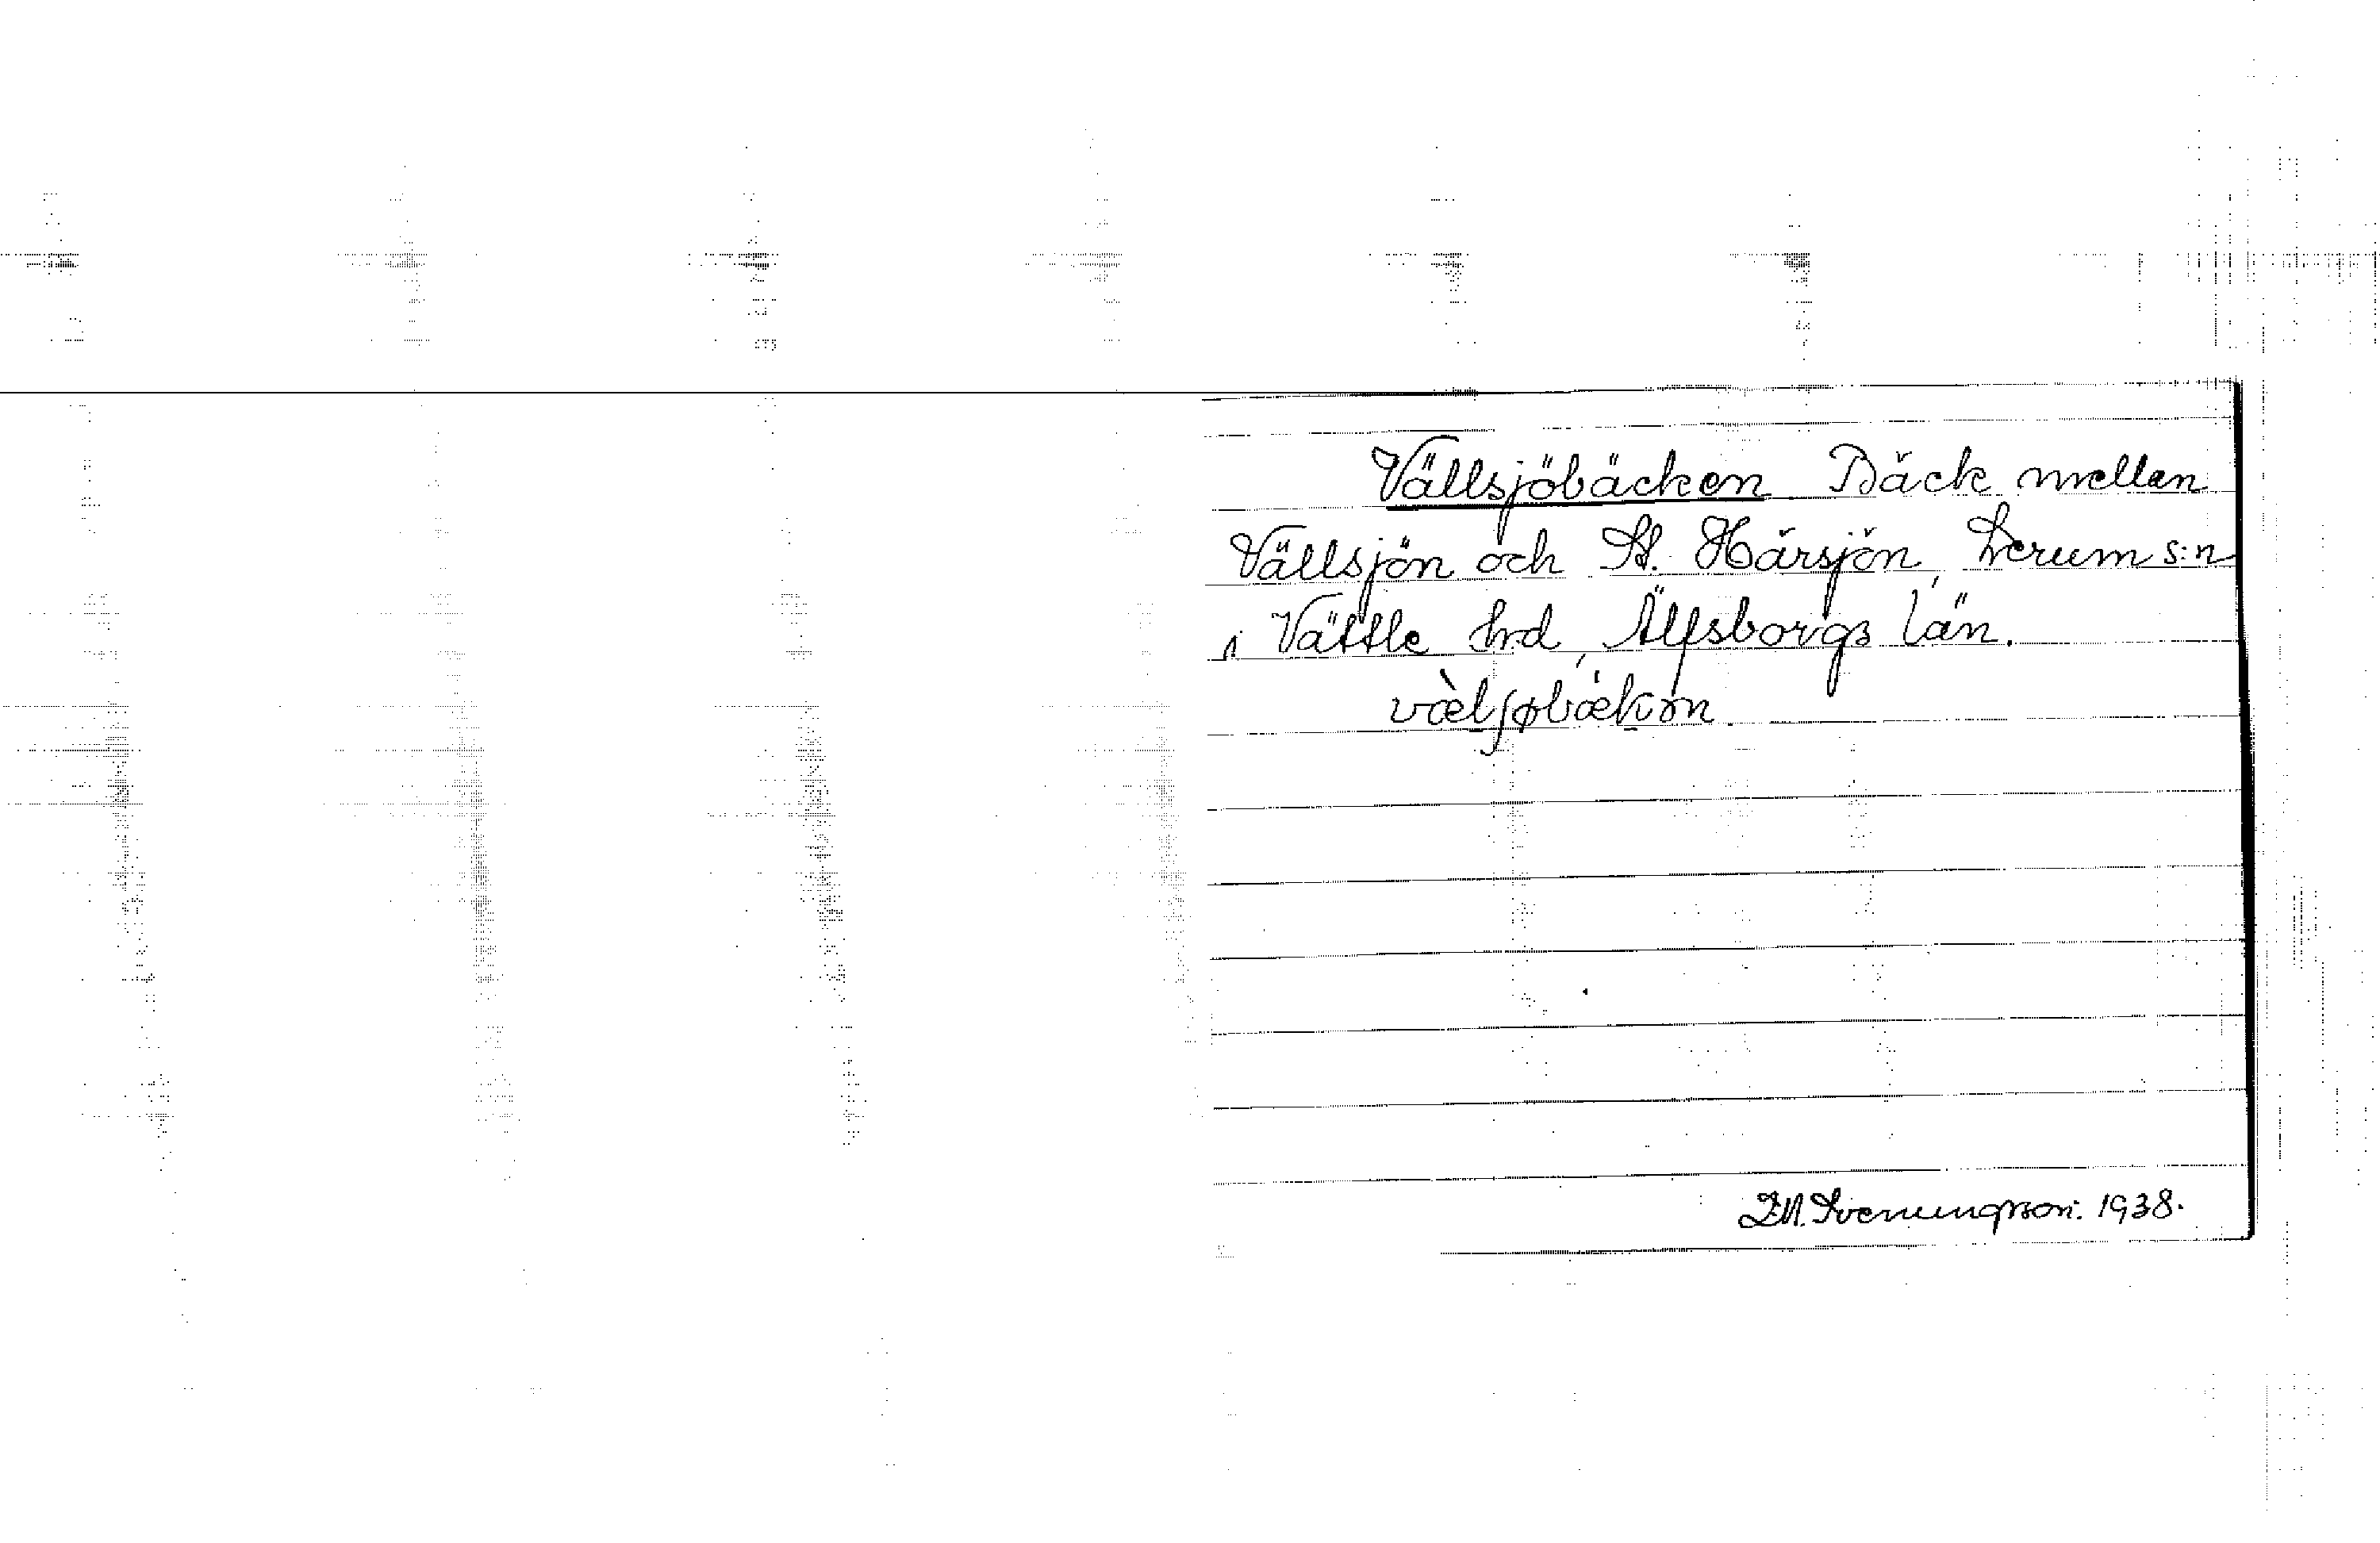 Vällsjöbäcken Bäck mellan
Vällsjön och St. Härsjön, Lerum s:n
i Vättle hrd, Älfsborgs län.
vœ̀lʃøbækən
Svenungsson. 1938.